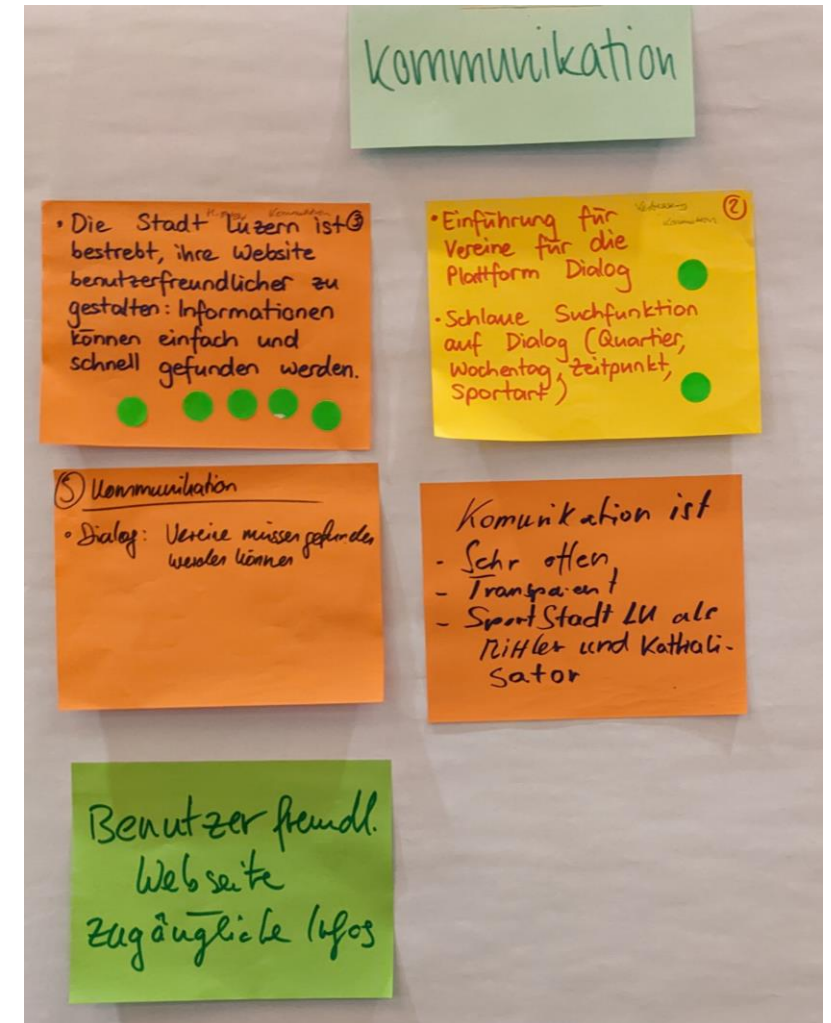 Kommunikation
• Die Stadt Luzern ist ③
bestrebt, ihre Website
benutzerfreundlicher zu
gestalten: Informationen
können einfach und
schnell gefunden werden.
②
• Einführung für
Vereine für die
Plattform Dialog
• Schlaue Suchfunktion
auf Dialog (Quartier,
Wochentag, Zeitpunkt,
Sportart)
⑤ Kommunikation
• Dialog: Vereine müssen gefunden
werden können
Komunikation ist
- Sehr offen
- Transparent
- SportStadt LU als
Mittler und Kathali-
sator
Benutzerfreundl.
Webseite
zugängliche Infos